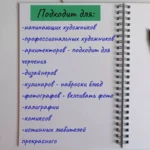 Подходит для:
-начинающих художников
-профессиональных художников
-архитекторов - подходит для
черчения
-дизайнеров
-кулинаров - наброски блюд
-фотографов - вклеивать фото
-каллиграфии
-комиксов
-истинных любителей
прекрасного